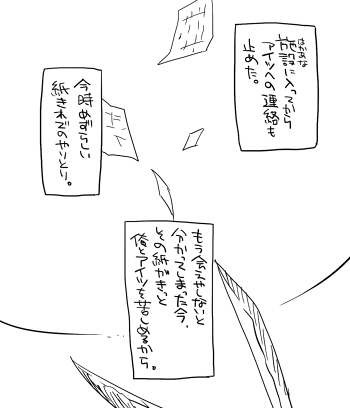 施設に入ってから
はかあな
アイツへの連絡も
止めた。
今時めずらしい
紙きれでのやりとり。
もう会えやしないと
分かってしまった今、
その紙がきっと
俺とアイツを苦しめるから。